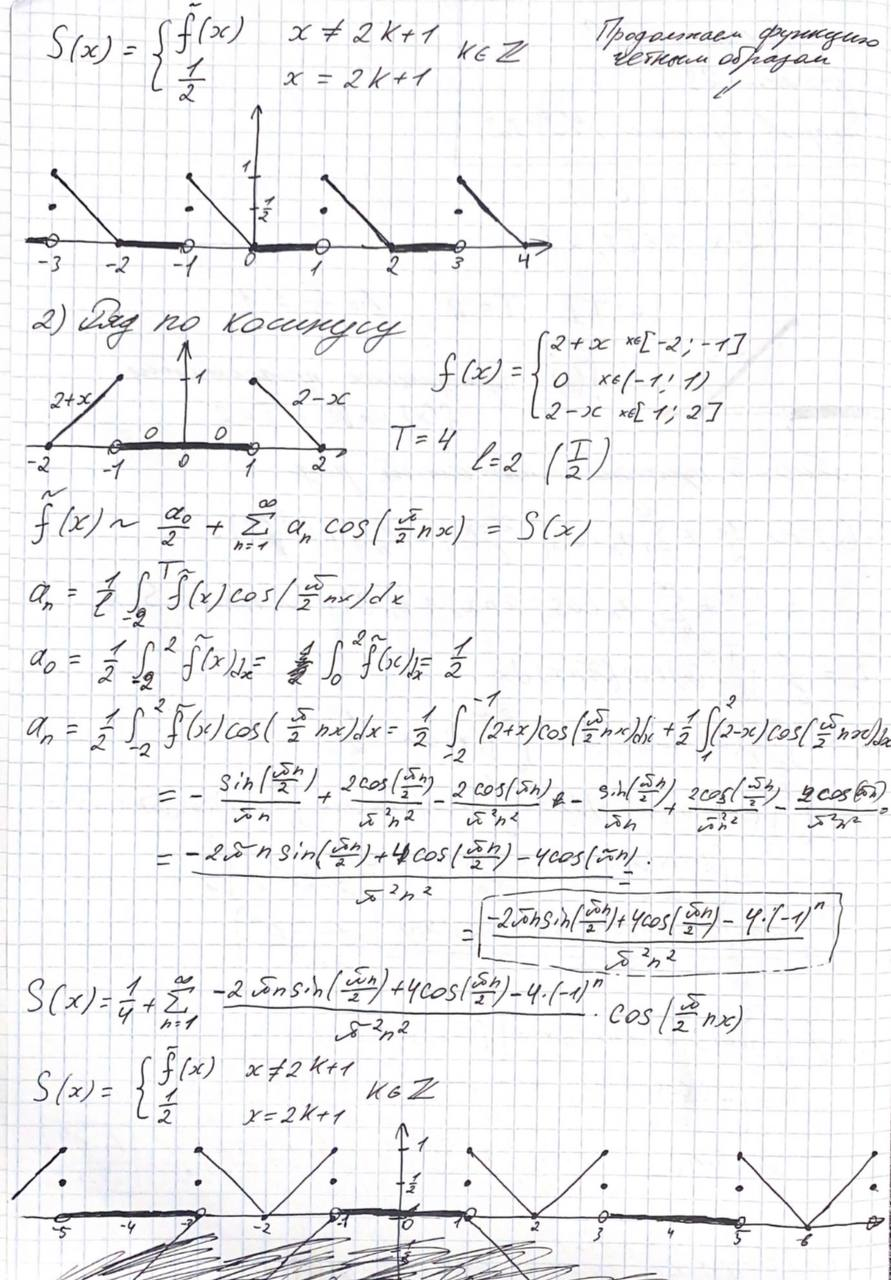 S(x) = { f̃(x)   x ≠ 2k+1
1/2   x = 2k+1   k∈ℤ
Продолжаем функцию
чётным образом
1
1/2
-3 -2 -1 0 1 2 3 4
2) Ряд по косинусу
f(x) = { 2+x x∈[-2; -1]
0 x∈(-1; 1)
2-x x∈[1; 2]
1
2+x 0 0 2-x
-2 -1 0 1 2
T=4 l=2 (T/2)
f̃(x) ~ a₀/2 + Σ_{n=1}^{∞} aₙ cos(π/2 nx) = S(x)
aₙ = 1/l ∫_{-2}^{T} f̃(x) cos(π/2 nx)dx
a₀ = 1/2 ∫_{-2}^{2} f̃(x)dx = ∫_{0}^{2} f̃(x)dx = 1/2
aₙ = 1/2 ∫_{-2}^{2} f̃(x) cos(π/2 nx)dx = 1/2 ∫_{-2}^{-1} (2+x)cos(π/2 nx)dx + 1/2 ∫_{1}^{2} (2-x)cos(π/2 nx)dx
= - sin(πn/2)/πn + 2cos(πn/2)/π²n² - 2cos(πn)/π²n² - sin(πn/2)/πn + 2cos(πn/2)/π²n² - 2cos(πn)/π²n² =
= (-2πn sin(πn/2) + 4cos(πn/2) - 4cos(πn))/π²n² =
= (-2πn sin(πn/2) + 4cos(πn/2) - 4·(-1)ⁿ)/π²n²
S(x) = 1/4 + Σ_{n=1}^{∞} (-2πn sin(πn/2) + 4cos(πn/2) - 4·(-1)ⁿ)/π²n² · cos(π/2 nx)
S(x) = { f̃(x)   x≠2k+1
1/2   x=2k+1   k∈ℤ
1
1/2
-5 -4 -2 -1 0 1 2 3 4 5 6